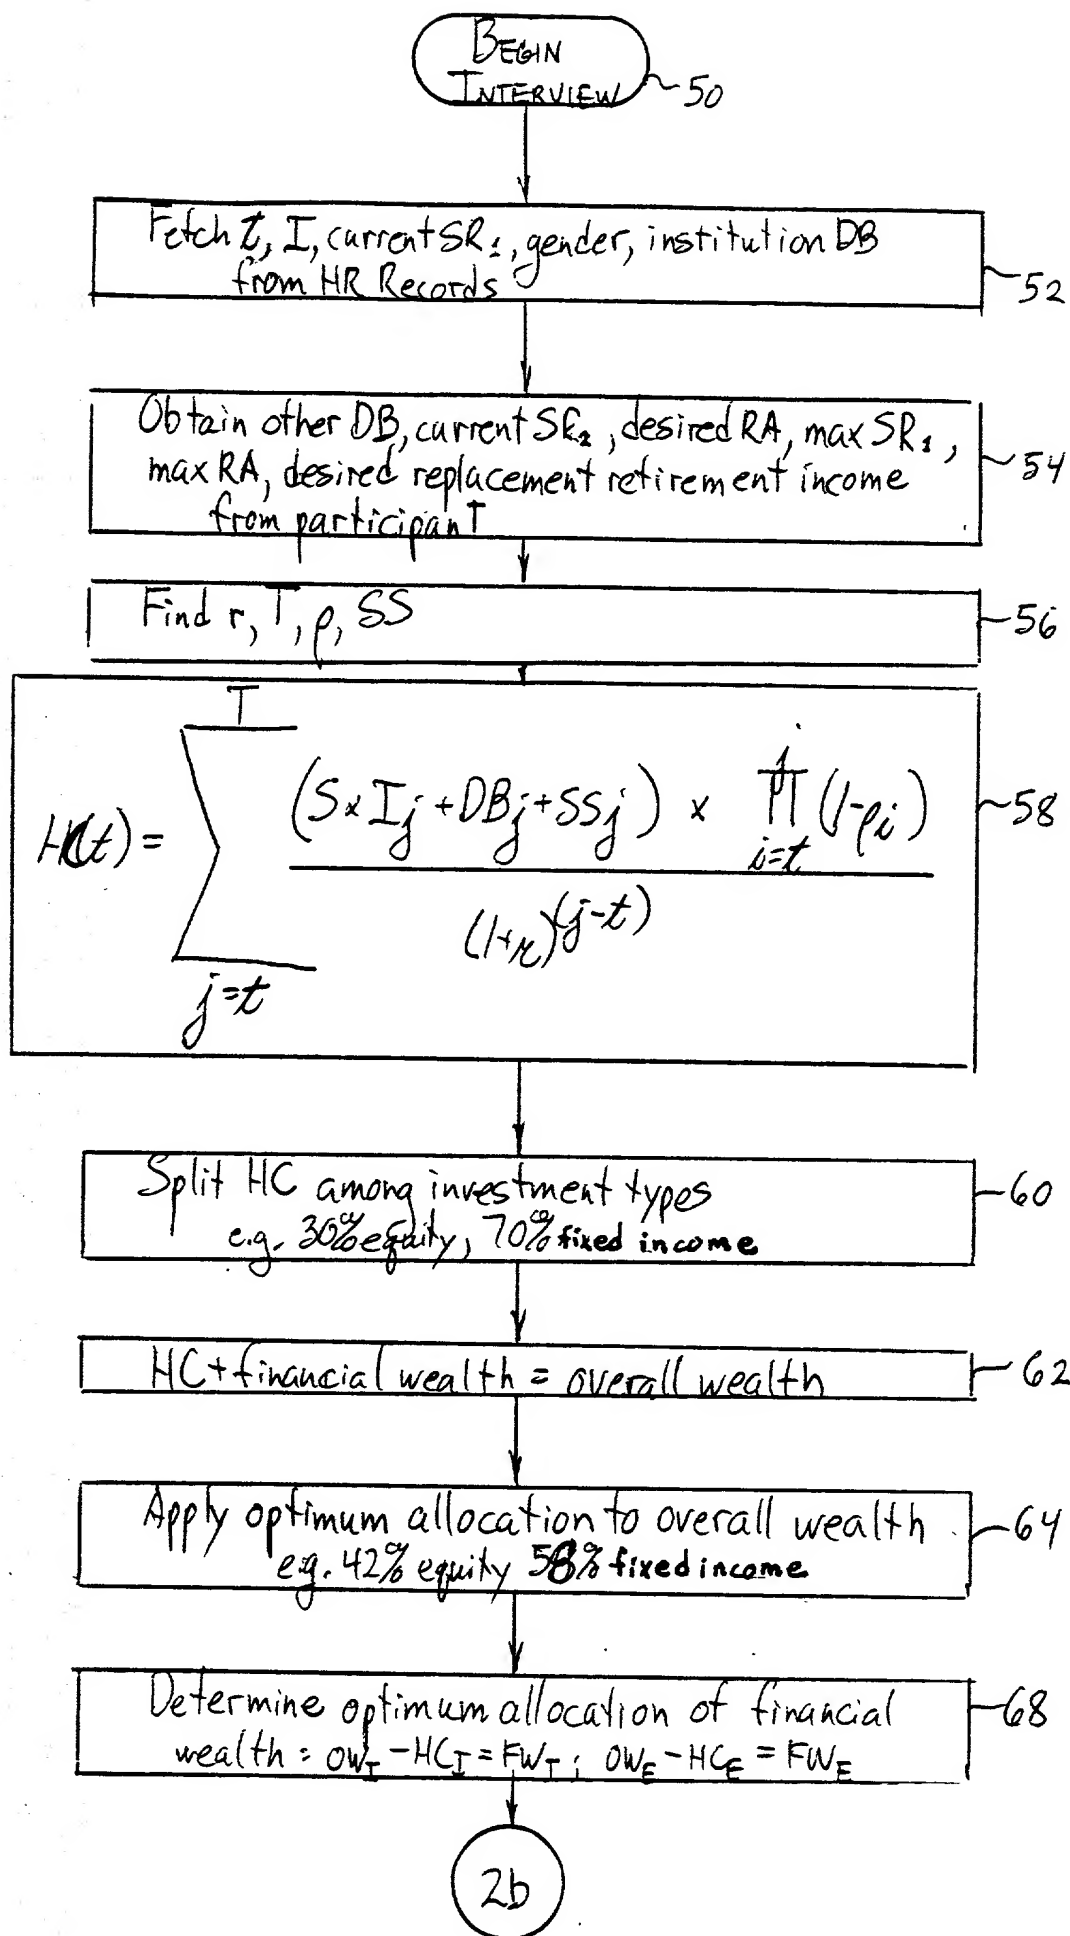 BEGIN
INTERVIEW
50
Fetch t, I, current SR₁, gender, institution DB
from HR Records
52
Obtain other DB, current SR₂, desired RA, max SR₁,
max RA, desired replacement retirement income
from participant
54
Find r, T, ρ, SS
56
HC(t) = \sum_{j=t}^{T} \frac{(S × I_j + DB_j + SS_j) × \prod_{i=t}^{j} (1-ρ_i)}{(1+r)^{(j-t)}}
58
Split HC among investment types
e.g. 30% equity, 70% fixed income
60
HC + financial wealth = overall wealth
62
Apply optimum allocation to overall wealth
e.g. 42% equity 58% fixed income
64
Determine optimum allocation of financial
wealth = OW_I - HC_I = FW_I ; OW_E - HC_E = FW_E
68
2b